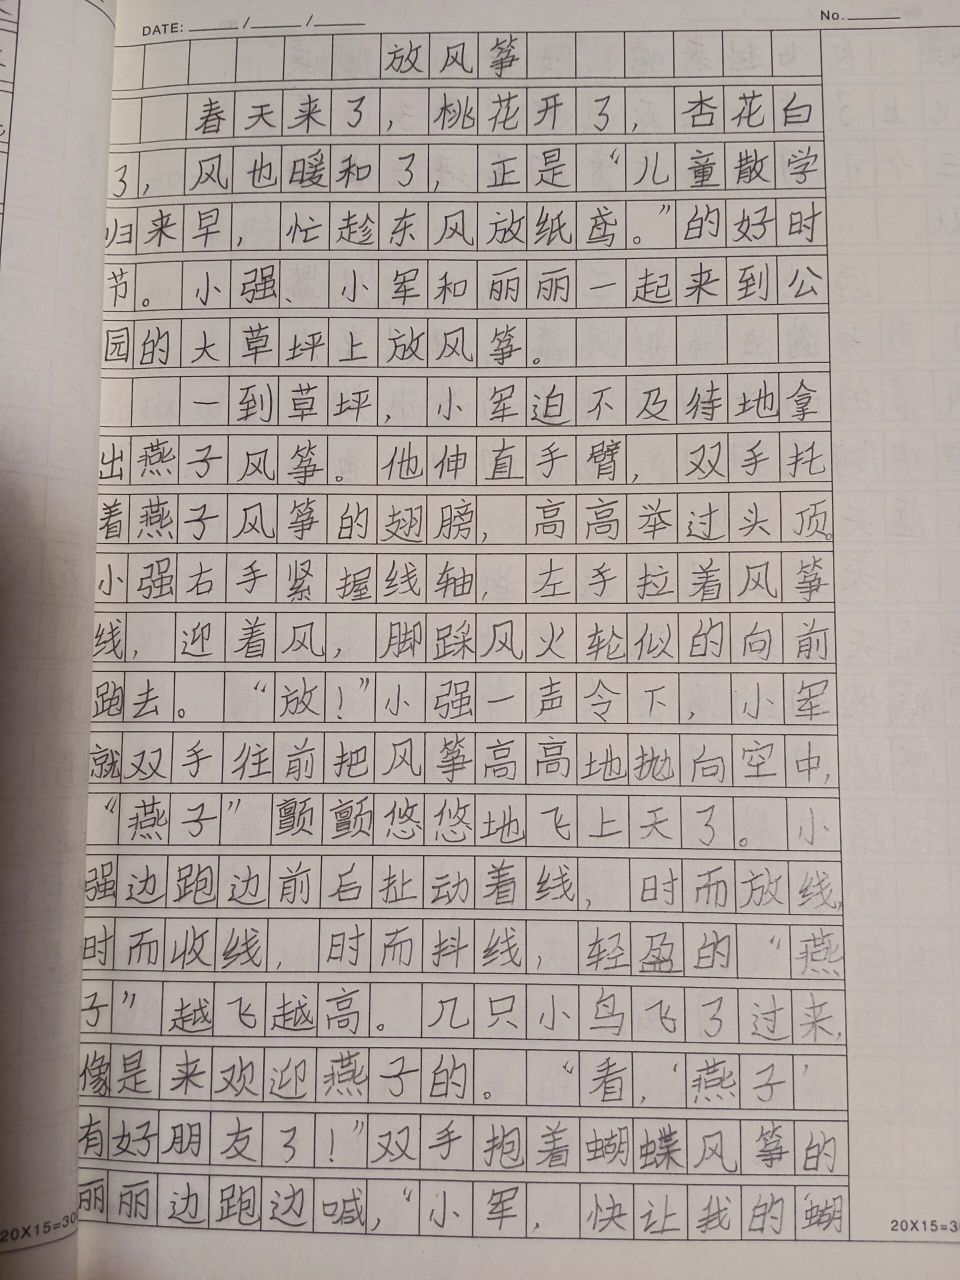 DATE: ____/____/____ No.____
放风筝
春天来了，桃花开了，杏花白
了，风也暖和了，正是“儿童散学
归来早，忙趁东风放纸鸢。”的好时
节。小强、小军和丽丽一起来到公
园的大草坪上放风筝。
一到草坪，小军迫不及待地拿
出燕子风筝。他伸直手臂，双手托
着燕子风筝的翅膀，高高举过头顶。
小强右手紧握线轴，左手拉着风筝
线，迎着风，脚踩风火轮似的向前
跑去。“放！”小强一声令下，小军
就双手往前把风筝高高地抛向空中，
“燕子”颤颤悠悠地飞上天了。小
强边跑边前后扯动着线，时而放线，
时而收线，时而抖线，轻盈的“燕
子”越飞越高。几只小鸟飞了过来，
像是来欢迎燕子的。“看，‘燕子’
有好朋友了！”双手抱着蝴蝶风筝的
丽丽边跑边喊，“小军，快让我的蝴
20X15=30
20X15=3